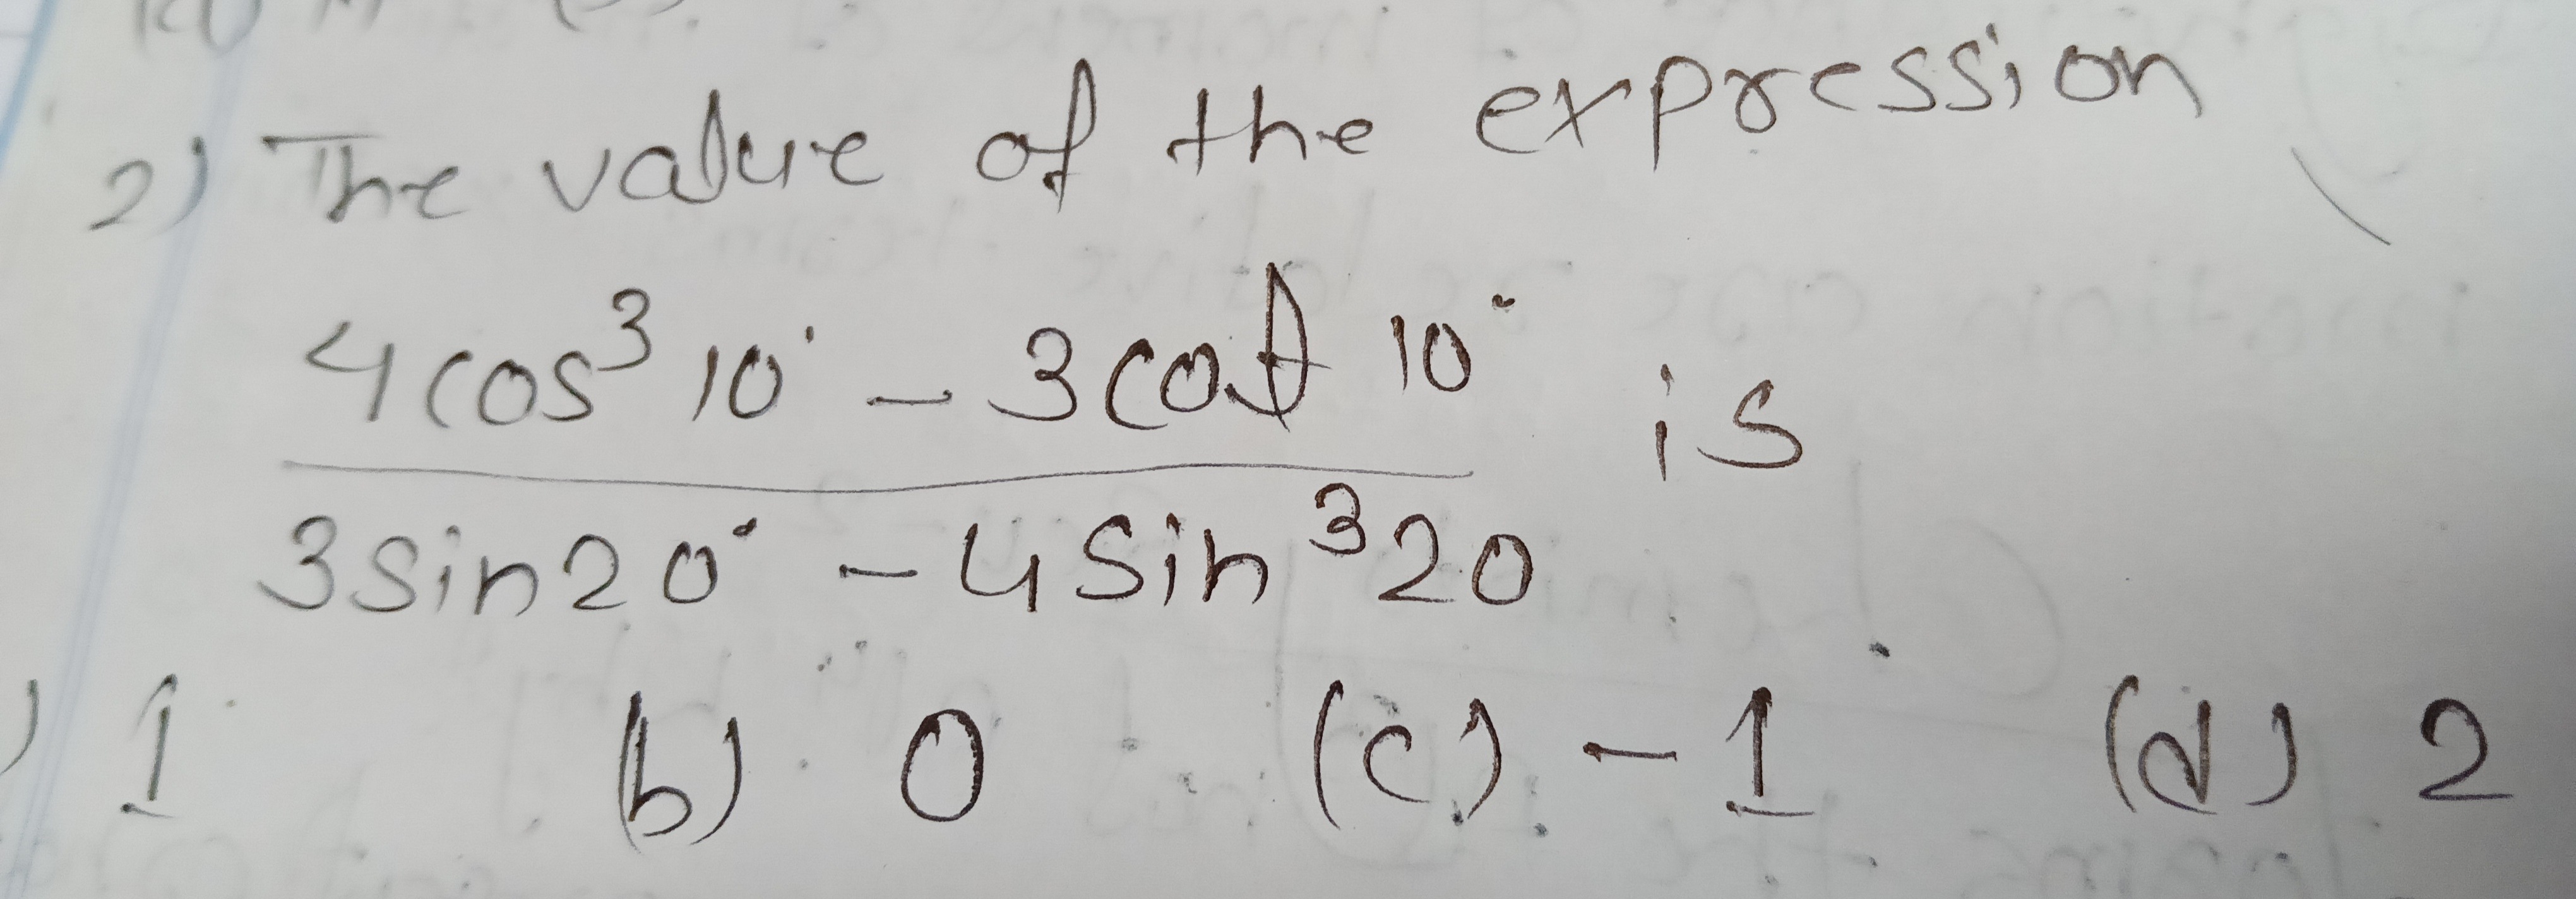 2) The value of the expression
4cos³10° - 3cot 10°
is
3sin20° - 4sin³20
) 1 (b) 0 (c) -1 (d) 2